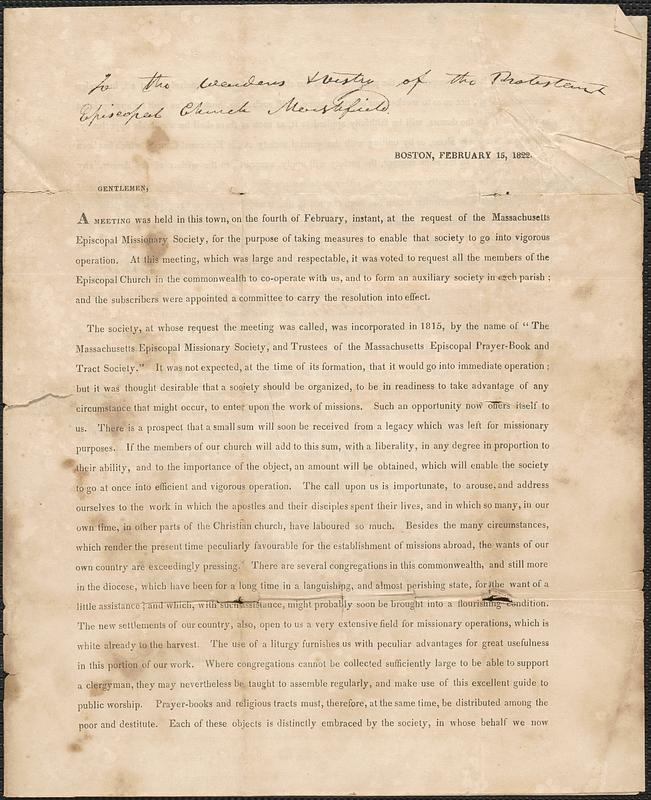 To the wardens & vestry of the Protestant
Episcopal Church Marshfield.
BOSTON, FEBRUARY 15, 1822.
GENTLEMEN,
A MEETING was held in this town, on the fourth of February, instant, at the request of the Massachusetts
Episcopal Missionary Society, for the purpose of taking measures to enable that society to go into vigorous
operation. At this meeting, which was large and respectable, it was voted to request all the members of the
Episcopal Church in the commonwealth to co-operate with us, and to form an auxiliary society in each parish ;
and the subscribers were appointed a committee to carry the resolution into effect.
The society, at whose request the meeting was called, was incorporated in 1815, by the name of “ The
Massachusetts Episcopal Missionary Society, and Trustees of the Massachusetts Episcopal Prayer-Book and
Tract Society.” It was not expected, at the time of its formation, that it would go into immediate operation ;
but it was thought desirable that a society should be organized, to be in readiness to take advantage of any
circumstance that might occur, to enter upon the work of missions. Such an opportunity now offers itself to
us. There is a prospect that a small sum will soon be received from a legacy which was left for missionary
purposes. If the members of our church will add to this sum, with a liberality, in any degree in proportion to
their ability, and to the importance of the object, an amount will be obtained, which will enable the society
to go at once into efficient and vigorous operation. The call upon us is importunate, to arouse, and address
ourselves to the work in which the apostles and their disciples spent their lives, and in which so many, in our
own time, in other parts of the Christian church, have laboured so much. Besides the many circumstances,
which render the present time peculiarly favourable for the establishment of missions abroad, the wants of our
own country are exceedingly pressing. There are several congregations in this commonwealth, and still more
in the diocese, which have been for a long time in a languishing, and almost perishing state, for the want of a
little assistance ; and which, with such assistance, might probably soon be brought into a flourishing condition.
The new settlements of our country, also, open to us a very extensive field for missionary operations, which is
white already to the harvest. The use of a liturgy furnishes us with peculiar advantages for great usefulness
in this portion of our work. Where congregations cannot be collected sufficiently large to be able to support
a clergyman, they may nevertheless be taught to assemble regularly, and make use of this excellent guide to
public worship. Prayer-books and religious tracts must, therefore, at the same time, be distributed among the
poor and destitute. Each of these objects is distinctly embraced by the society, in whose behalf we now